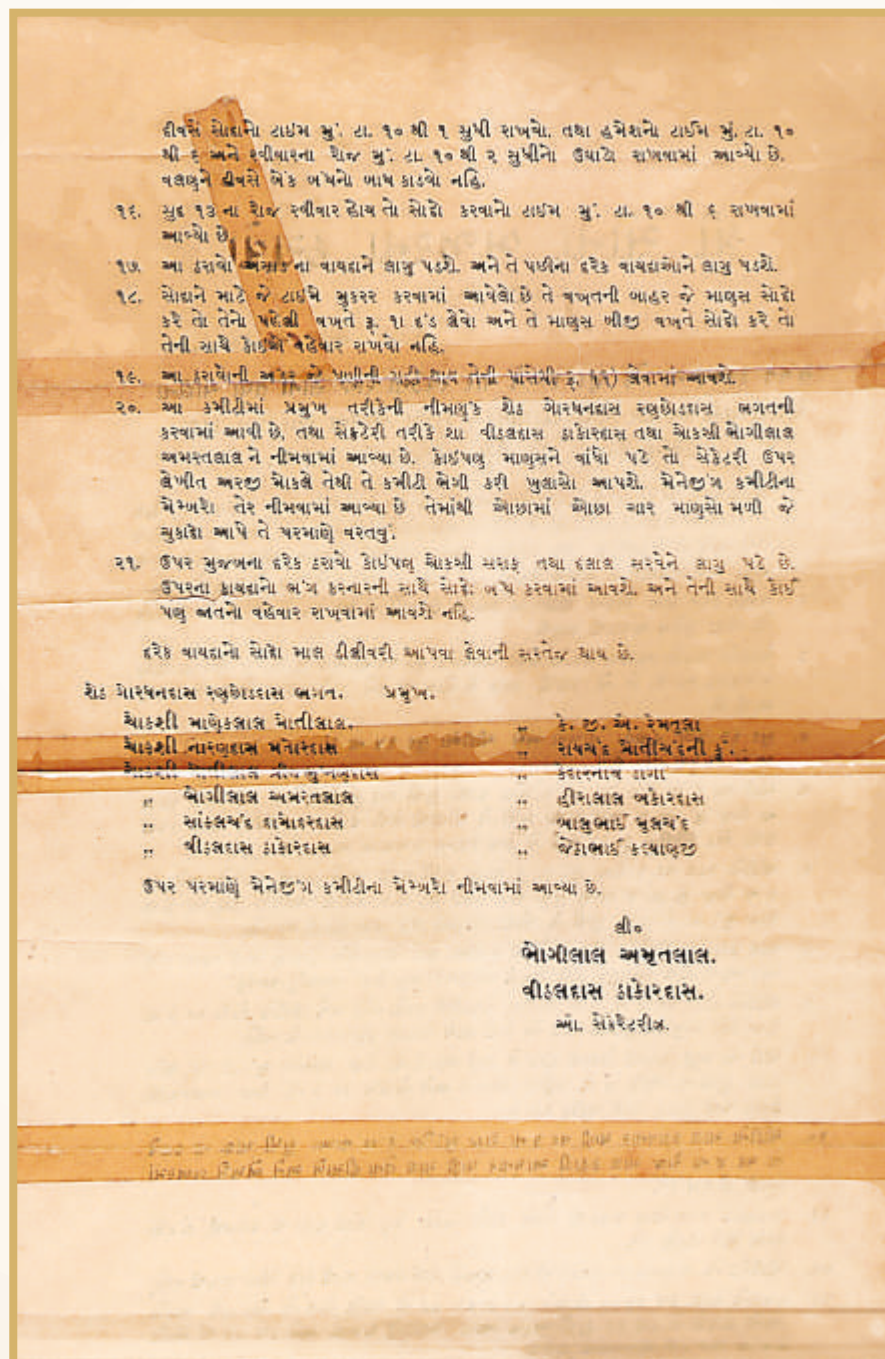 દીવસે સોદાનો ટાઈમ મું. ટા. ૧૦ થી ૧ સુધી રાખવો. તથા હમેશનો ટાઈમ મું. ટા. ૧૦
થી ૬ અને રવીવારના રોજ મું. ટા. ૧૦ થી ૨ સુધીનો ઉઘાડો રાખવામાં આવ્યો છે.
વલણને દીવસે બેંક બંધનો બાધ કાડવો નહિ.
૧૬. સુદ ૧૩ ના રોજ રવીવાર હોય તો સોદો કરવાનો ટાઈમ મું. ટા. ૧૦ થી ૬ રાખવામાં
આવ્યો છે.
૧૭ આ ઠરાવો અસાડના વાયદાને લાગુ પડશે. અને તે પછીના દરેક વાયદાઓને લાગુ પડશે.
૧૮. સોદાને માટે જે ટાઈમ મુકરર કરવામાં આવેલો છે તે વખતની બાહર જે માણસ સોદો
કરે તો તેનો પહેલી વખતે રૂ. ૧ા દંડ લેવો અને તે માણસ બીજી વખતે સોદો કરે તો
તેની સાથે કોઈએ વેહેવાર રાખવો નહિ.
૧૯. આ ઠરાવોની અંદર જે ધણીની સહી થાય તેની પાસેથી રૂ. ૧૬) લેવામાં આવશે.
૨૦. આ કમીટીમાં પ્રમુખ તરીકેની નીમણુંક શેઠ ગોરધનદાસ રણછોડદાસ ભગતની
કરવામાં આવી છે, તથા સેક્રેટેરી તરીકે શા વીઠલદાસ ઠાકોરદાસ તથા ચોકસી ભોગીલાલ
અમરતલાલ ને નીમવામાં આવ્યા છે. કોઈપણ માણસને વાંધો પડે તો સેક્રેટરી ઉપર
લેખીત અરજી મોકલે તેથી તે કમીટી ભેગી કરી ખુલાસો આપશે. મેનેજીંગ કમીટીના
મેમ્બરો તેર નીમવામાં આવ્યા છે તેમાંથી ઓછામાં ઓછા ચાર માણસો મળી જે
ચુકાદો આપે તે પરમાણે વરતવું.
૨૧. ઉપર મુજબના દરેક ઠરાવો કોઈપણ ચોકસી સરાફ તથા દલાલ સરવેને લાગુ પડે છે.
ઉપરના કાયદાનો ભંગ કરનારની સાથે સોદો બંધ કરવામાં આવશે. અને તેની સાથે કોઈ
પણ જાતનો વહેવાર રાખવામાં આવશે નહિ.
દરેક વાયદાનો સોદો માલ ડીલીવરી આપવા લેવાની સરતેજ થાય છે.
શેઠ ગોરધનદાસ રણછોડદાસ ભગત. પ્રમુખ.
ચોકશી માણેકલાલ મોતીલાલ. ,, કે. જી. એ. રેમતુલા
ચોકશી નારણદાસ મનોરદાસ ,, રાયચંદ મોતીચંદની કું.
ચોકશી મોતીલાલ ,, કેદારનાથ ડાગા
,, ભોગીલાલ અમરતલાલ ,, હીરાલાલ બકોરદાસ
,, સાંકલચંદ દામોદરદાસ ,, બાલુભાઈ મુલચંદ
,, વીઠલદાસ ઠાકોરદાસ ,, જેઠાભાઈ કલ્યાણજી
ઉપર પરમાણે મેનેજીંગ કમીટીના મેમ્બરો નીમવામાં આવ્યા છે.
લી૦
ભોગીલાલ અમૃતલાલ.
વીઠલદાસ ઠાકોરદાસ.
ઓ. સેક્રેટરીઝ.